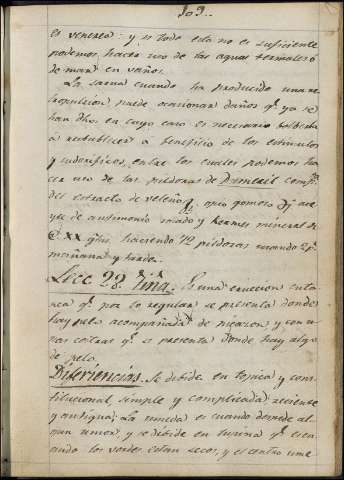 309..
es venerea: y si todo esto no es suficiente
podemos hacer uso de las aguas termales ó
de mar en vaños.
La sarna cuando ha producido una re
repulsion puede ocasionar daños q.e ya se
han dho. en cuyo caso es necesario
á reestablecer á beneficio de los estimulos
y sudorificos, entre los cuales podemos ha
cer uso de las pildoras de Dumeril comp.tas
del estracto de veleño opio gomoso
de antimonio rojado y kermes mineral de
XX g.nos haciendo 72 pildoras usando 2 p.r
mañana y tarde.
Lecc 22. Tiña. Es una erucion cuta
nea q.e por lo regular se presenta donde
hay pelo acompañada de picazon y con u
nas costras q.e se presenta donde hay algo
de pelo
Diferiencias. Se dibide en topica y cons
titucional, simple y complicada reciente
y antigua: La umeda es cuando depende al
gun umor y se dibide en
ando los vordes estan secos, y el centro ume